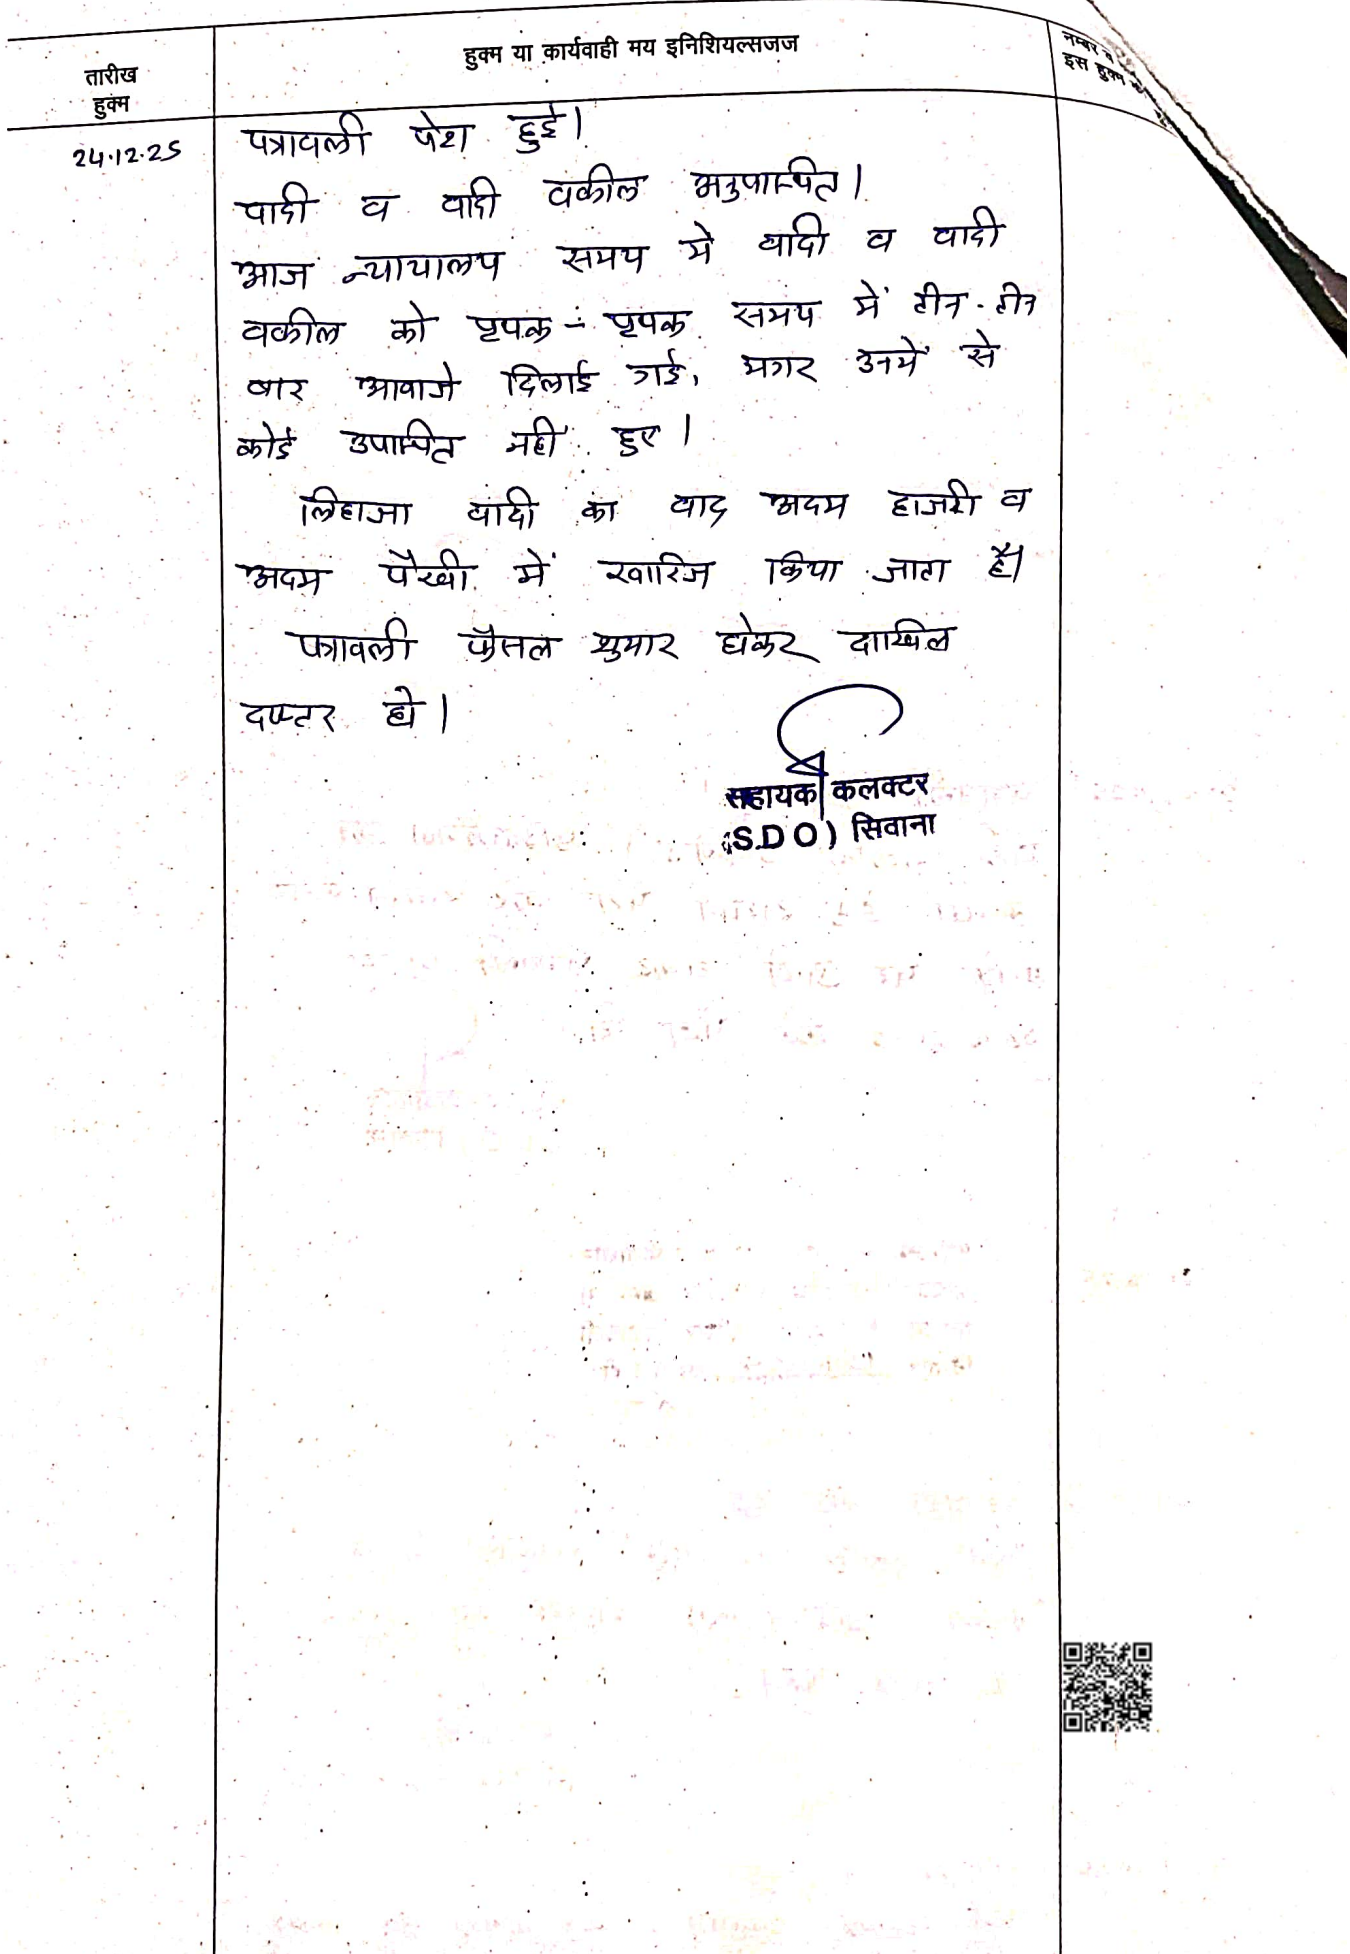 तारीख
हुक्म
हुक्म या कार्यवाही मय इनिशियल्सजज
नम्बर व
इस हुक्म
24.12.25
पत्रावली पेश हुई।
वादी व वादी वकील अनुपस्थित।
आज न्यायालय समय मे वादी व वादी
वकील को पृथक - पृथक समय में तीन - तीन
बार आवाजे दिलाई गई, मगर उनमें से
कोई उपस्थित नही हुए।
लिहाजा वादी का वाद अदम हाजरी व
अदम पैरवी में खारिज किया जाता है।
पत्रावली फैसल शुमार होकर दाखिल
दफ्तर हो।
सहायक कलक्टर
(S.D.O) सिवाना